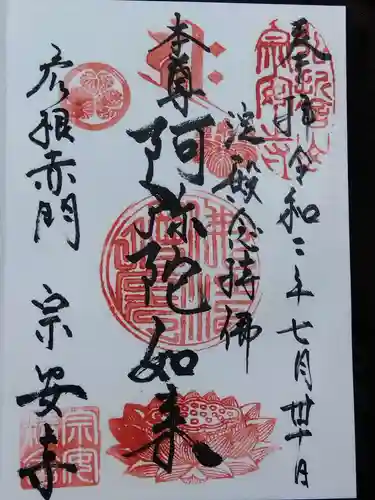 奉拝 令和二年七月卅十日
淀殿念持佛
本尊 阿弥陀如来
彦根赤門 宗安寺